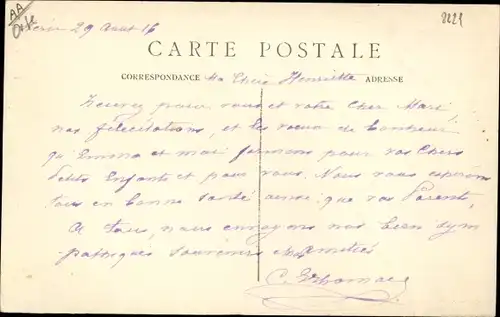 AA
Oise
2821
29 Aout 16
CARTE POSTALE
CORRESPONDANCE Ma Chère Henriette ADRESSE
pour vous et votre Cher Mari
nos félicitations, et les vœux de bonheur
qu'Emma et moi formons pour vos Chers
Petits Enfants et pour vous. Nous vous espérons
tous en bonne santé ainsi que vos Parents,
A tous, nous envoyons nos bien sym
pathiques souvenirs amitiés
C.